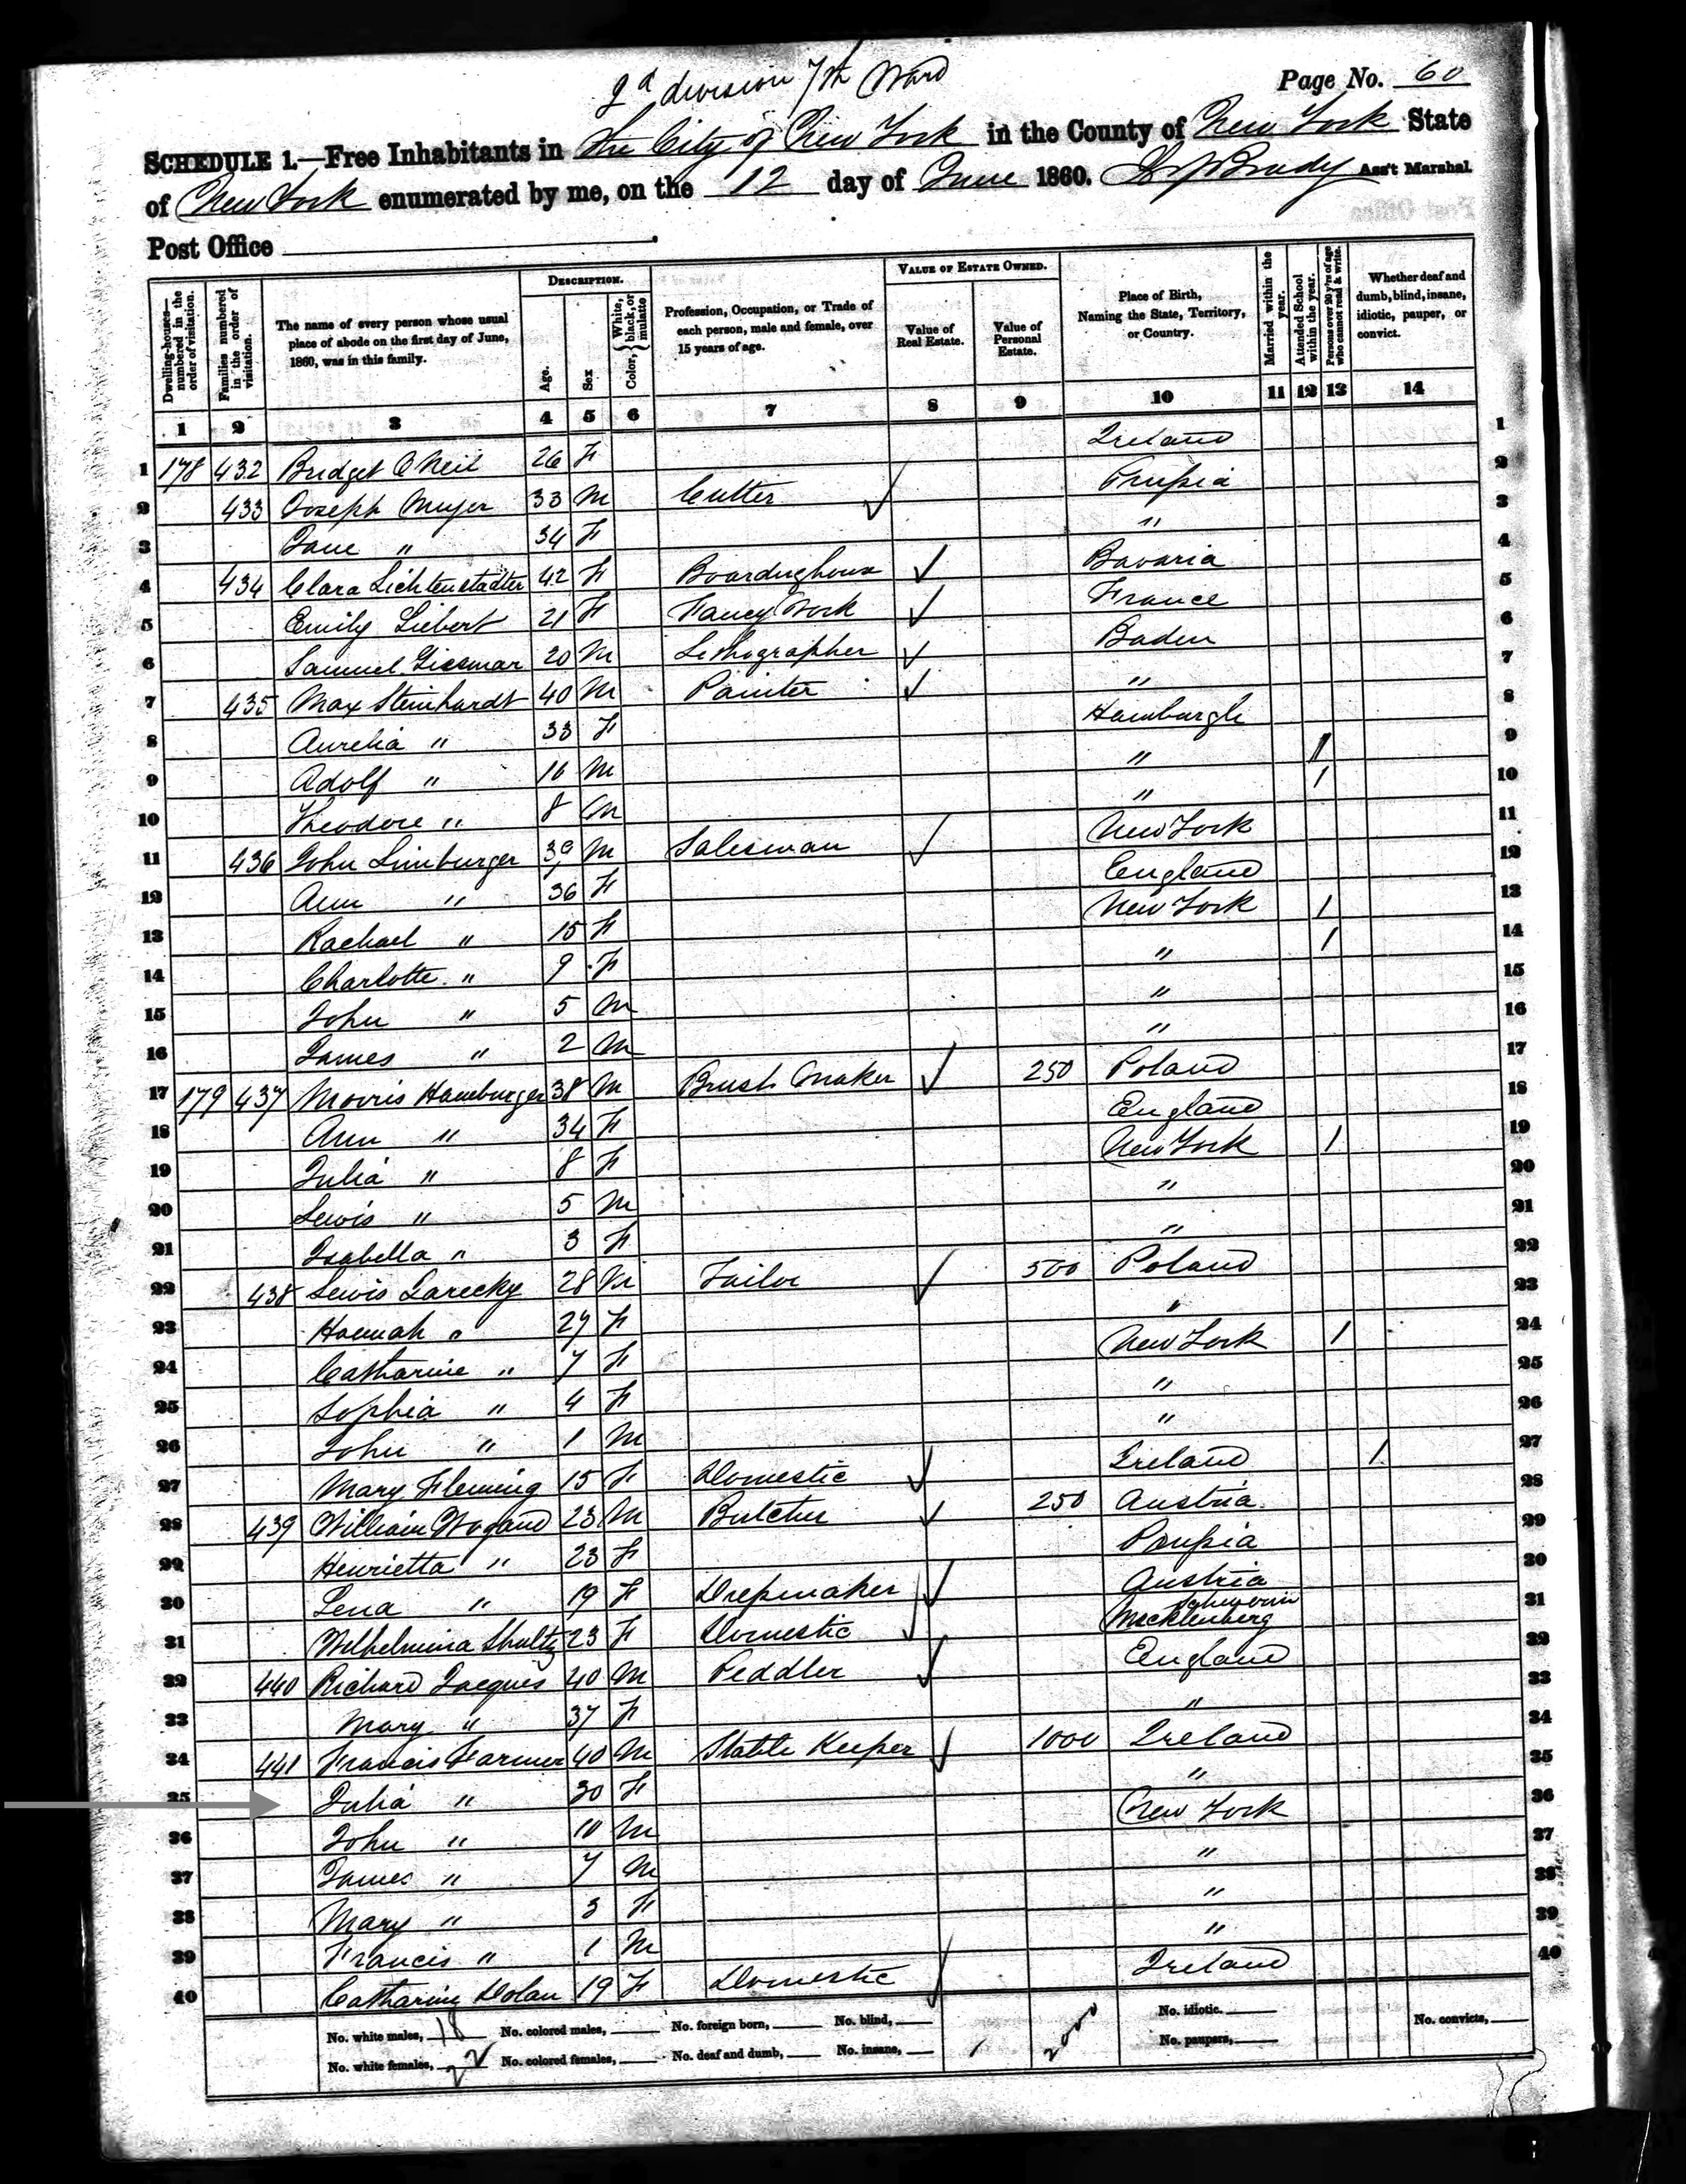 2d division 7th Ward
Page No. 60
SCHEDULE 1.—Free Inhabitants in The City of New York in the County of New York State
of New York enumerated by me, on the 12 day of June 1860. Brady Ass't Marshal.
Post Office
Dwelling-houses—numbered in the order of visitation.
Families numbered in the order of visitation.
The name of every person whose usual place of abode on the first day of June, 1860, was in this family.
DESCRIPTION.
Age.
Sex
Color, { White, black, or mulatto
Profession, Occupation, or Trade of each person, male and female, over 15 years of age.
VALUE OF ESTATE OWNED.
Value of Real Estate.
Value of Personal Estate.
Place of Birth, Naming the State, Territory, or Country.
Married within the year.
Attended School within the year.
Persons over 20 y'rs of age who cannot read & write.
Whether deaf and dumb, blind, insane, idiotic, pauper, or convict.
1 2 3 4 5 6 7 8 9 10 11 12 13 14
1 178 432 Bridget O Neil 26 F Ireland 1
2 433 Joseph Myer 33 M Cutter ✓ Prussia 2
3 Jane " 34 F " 3
4 434 Clara Lichtenstadter 42 F Boardinghouse ✓ Bavaria 4
5 Emily Liebert 21 F Fancy Work ✓ France 5
6 Samuel Diesmar 20 M Lithographer ✓ Baden 6
7 435 Max Steinhardt 40 M Painter ✓ " 7
8 Aurelia " 33 F Hamburgh 8
9 Adolf " 16 M " 1 9
10 Theodore " 8 M " 1 10
11 436 John Limburger 39 M Salesman ✓ New York 11
12 Ann " 36 F England 12
13 Rachael " 15 F New York 1 13
14 Charlotte " 9 F " 1 14
15 John " 5 M " 15
16 James " 2 M " 16
17 179 437 Morris Hamburger 38 M Brush Maker ✓ 250 Poland 17
18 Ann " 34 F England 18
19 Julia " 8 F New York 1 19
20 Lewis " 5 M " 20
21 Isabella " 3 F " 21
22 438 Lewis Zarecky 28 M Tailor ✓ 500 Poland 22
23 Hannah " 27 F " 23
24 Catharine " 7 F New York 1 24
25 Sophia " 4 F " 25
26 John " 1 M " 26
27 Mary Fleming 15 F Domestic ✓ Ireland 1 27
28 439 William Wogand 23 M Butcher ✓ 250 Austria 28
29 Henrietta " 23 F Prussia 29
30 Lena " 19 F Dressmaker ✓ Austria 30
31 Wilhelmina Shultz 23 F Domestic ✓ Mecklenberg Schwerin 31
32 440 Richard Jacques 40 M Peddler ✓ England 32
33 Mary " 37 F " 33
34 441 Francis Farmer 40 M Stable Keeper ✓ 1000 Ireland 34
35 Julia " 30 F " 35
36 John " 10 M New York 36
37 James " 7 M " 37
38 Mary " 3 F " 38
39 Francis " 1 M " 39
40 Catharine Dolan 19 F Domestic ✓ Ireland 40
No. white males, 18 No. colored males, No. foreign born, No. blind, No. idiotic. No. convicts,
No. white females, 22 No. colored females, No. deaf and dumb, No. insane, 2000 No. paupers,